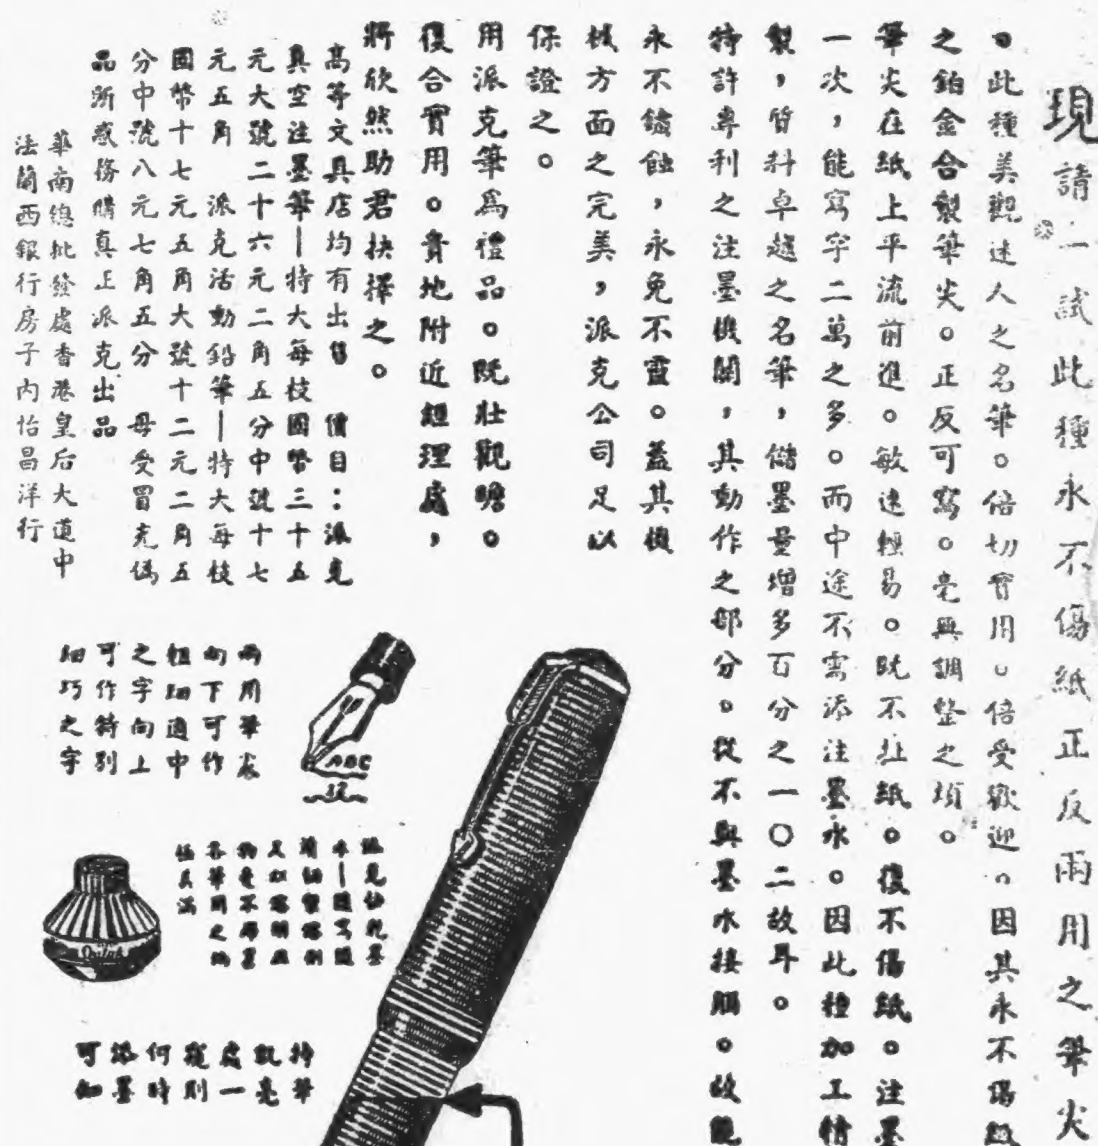 現請一試此種永不傷紙正反兩用之筆尖
。此種美觀迷人之名筆。倍切實用。倍受歡迎。因其永不傷紙
之鉑金合製筆尖。正反可寫。毫無調整之煩。
筆尖在紙上平流前進。敏速輕易。既不扯紙。復不傷紙。注墨
一次，能寫字二萬之多。而中途不需添注墨水。因此種加工精
製，質料卓越之名筆，儲墨量增多百分之一〇二故耳。
特許專利之注墨機關，其動作之部分。從不與墨水接觸。故能
永不鏽蝕，永免不靈。蓋其機
械方面之完美，派克公司足以
保證之。
用派克筆爲禮品。既壯觀瞻。
復合實用。貴地附近經理處，
將欣然助君抉擇之。
高等文具店均有出售 價目：派克
真空注墨筆—特大每枝國幣三十五
元大號二十六元二角五分中號十七
元五角 派克活動鉛筆—特大每枝
國幣十七元五角大號十二元二角五
分中號八元七角五分 毋受冒充僞
品所惑務購真正派克出品
華南總批發處香港皇后大道中
法蘭西銀行房子內怡昌洋行
兩用筆尖
向下可作
粗細適中
之字向上
可作特別
細巧之字
ABC
Quink
持筆
就亮
處一
窺則
何時
添墨
可知